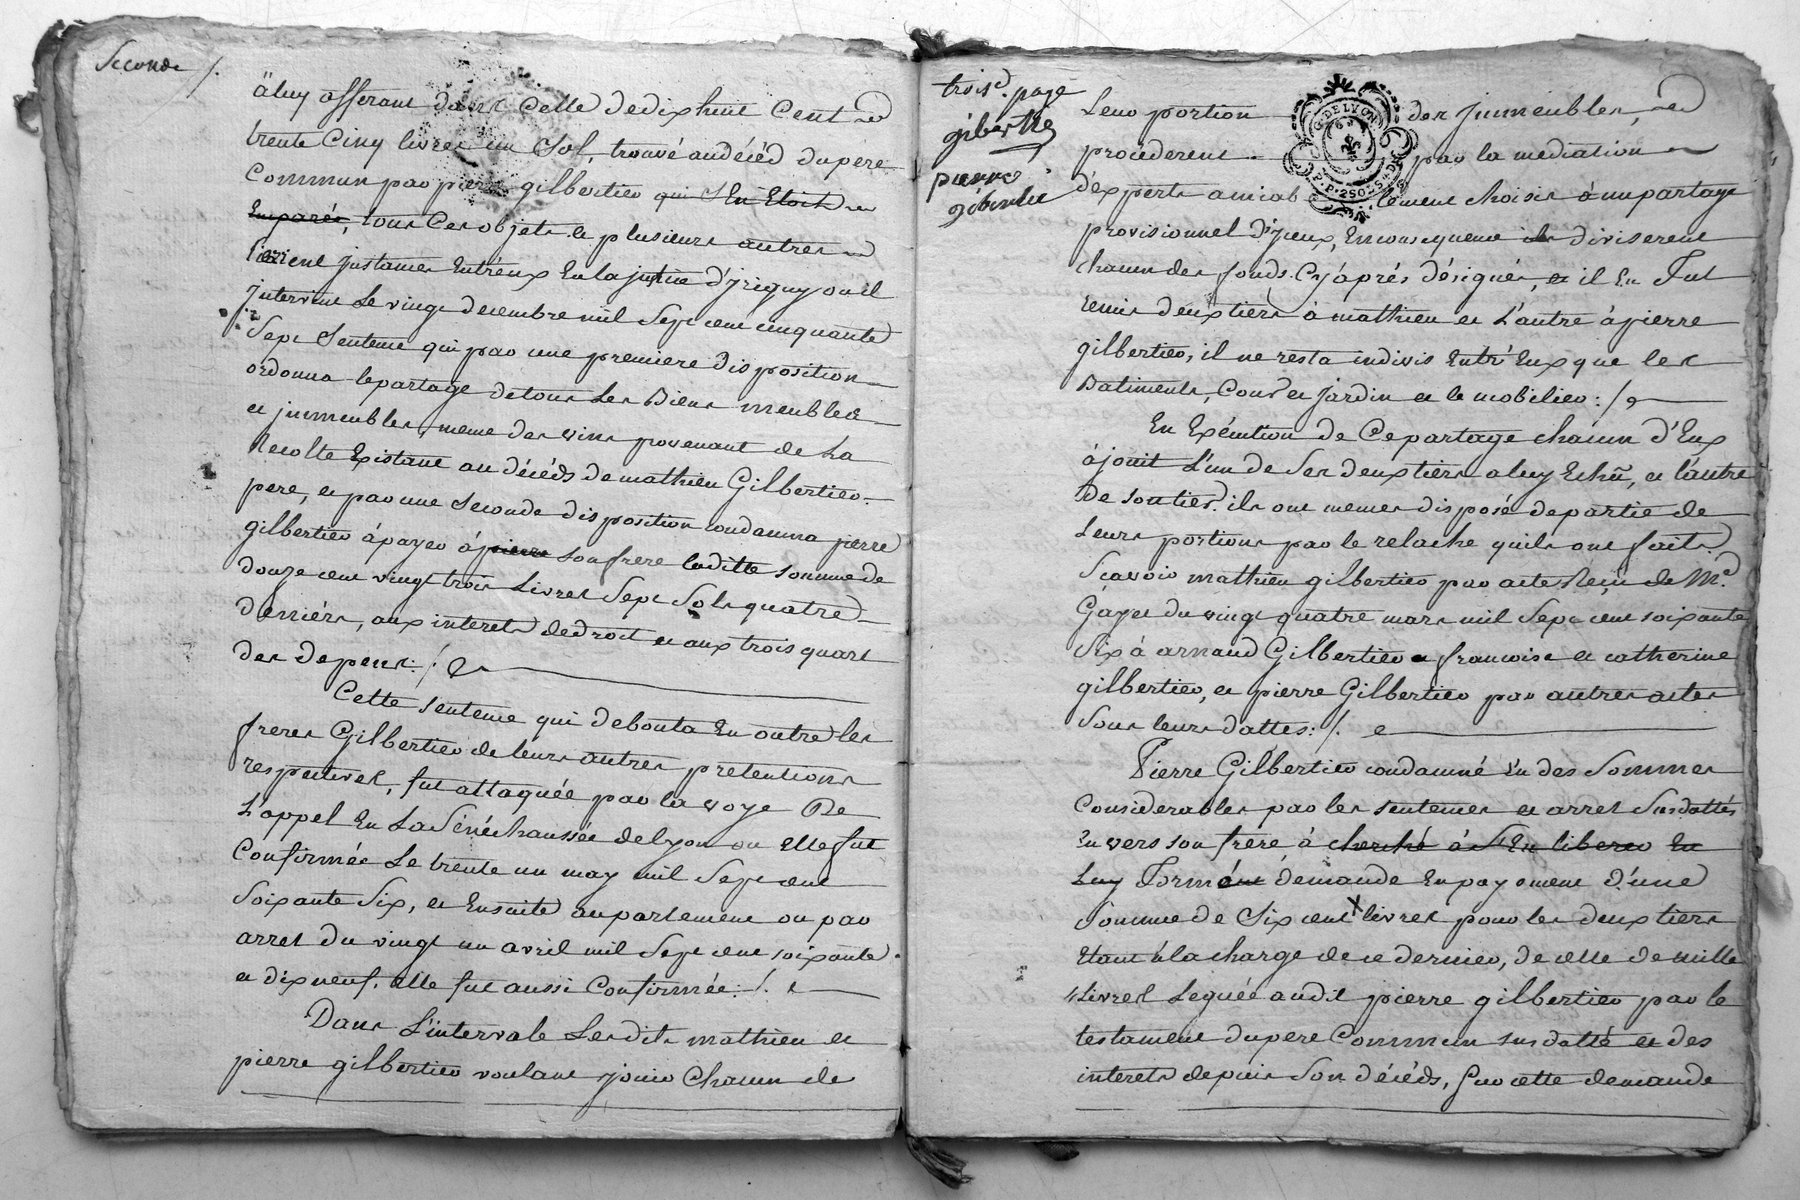 Seconde /.
äluy afferant dans Celle de dix huit Cent
trente Cinq livres un Sol, trouvé au décéd du père
Commun par pierre gilbertier qui S'En Etoit
Emparés, tous Ces objets & plusieurs autres
firent jnstances Entréux En la justice d'jrigny ou il
jntervint Le vingt decembre mil Sept cent cinquante
Sept Sentence qui par une premiere Disposition
ordonna le partage de tous Les Biens meubles
et jmmeubles, meme des vins provenant de La
Recolte Existant au décéds de mathieu Gilbertier
pere, et par une Seconde disposition condamna pierre
gilbertier à payer à pierre son frere laditte somme de
douze cent vingt trois Livres Sept Sols quatre
deniérs, aux interets de droit et aux trois quart
des depens: /.
Cette sentence qui debouta En outre les
freres Gilbertier de leurs autres pretentions
respectives, fut attaquée par la voye De
L'appel En La Sénéchaussée de lyon ou Elle fut
Confirmée Le trente un may mil Sept cent
Soixante Six, et Ensuite au parlement ou par
arret du vingt un avril mil Sept cent soixante
et dix neuf. Elle fut aussi Confirmée: /.
Dans L'intervale Lesdits mathieu et
pierre gilbertier voulant jouir Chacun de
trois.e page
gilbertier
pierre
gibertie
Leur portion des jmmeubles,
procéderent par la mediation
d'experts amiablement choisis à un partage
provisionnel d'yceux, En consequence ils diviserent
chacun des fonds Cy après désignés, et il En Fut
remis deux tiers à mathieu et L'autre à pierre
gilbertier, il ne resta indivis Entr'Eux que les
Batiments, Cour et jardin et le mobilier: /.
En Exécution de Ce partage chacun d'Eux
à jouit L'un de Ses deux tiers a luy Echû, et l'autre
de son tiers. ils ont memes disposé de partie de
Leurs portions par le relache quils ont faits.
Scavoir mathieu gilbertier par acte Reçu de M.e
Gayet du vingt quatre mars mil Sept cent soixante
Six à arnaud Gilbertier francoise et catherine
gilbertier, et pierre Gilbertier par autres actes
Sous leurs dattes: /.
Pierre Gilbertier condamné En des Sommes
Considerables par les sentences et arret Susdattés
Envers son frere à cherché à S'En liberer En
Luy Formént demande En payement D'une
Somme de Six cent livres pour les deux tiers
Etant à la charge de ce dernier, de celle de mille
Livres Leguée audit pierre gilbertier par le
testament du pere Commun susdatté et des
interets depuis Son décéds, Sur cette demande
G. DE LYON
P.P. 2 SOLS 4 D.